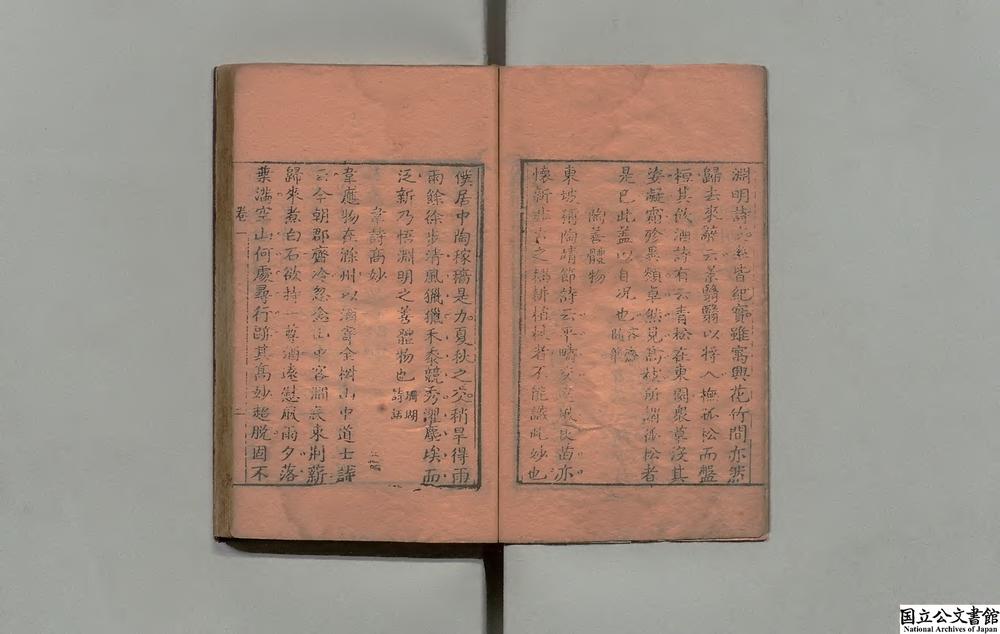 淵明詩文率皆紀實雖寓興花竹間亦然
歸去來辭云景翳翳以將入撫孤松而盤
桓其飲酒詩有云青松在東園衆草沒其
姿凝霜殄異類卓然見高枝所謂孤松者
是已此蓋以自况也容齋隨筆
陶善體物
東坡稱陶靖節詩云平疇交遠風良苗亦
懷新非古之耦耕植杖者不能識此妙也
僕居中陶稼穡是力夏秋之交稍旱得雨
雨餘徐步清風獵獵禾黍競秀濯塵埃而
泛新乃悟淵明之善體物也珊瑚詩話
韋詩高妙
韋應物在滁州以酒寄全椒山中道士詩
云今朝郡齋冷忽念山中客澗底束荆薪
歸來煮白石欲持一尊酒遠慰風雨夕落
葉滿空山何處尋行跡其高妙超脫固不
卷一
二
国立公文書館
National Archives of Japan